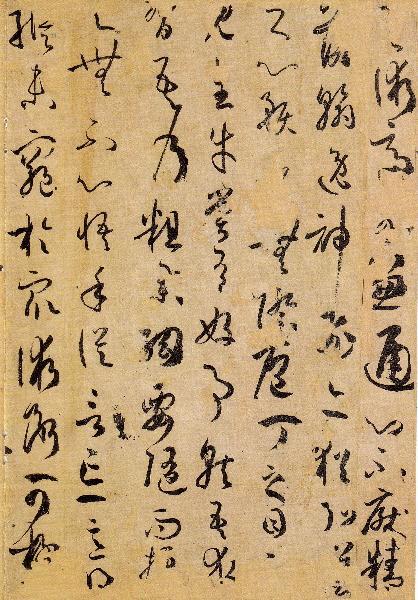 其術適可兼通心不厭精
落翰逸神飛亦猶弘羊
之心預乎無際庖丁之目不
見全牛嘗有好事就吾求
習吾乃粗舉綱要隨而授
之無不心悟手從言忘意得
縱未窮於眾術斷可極